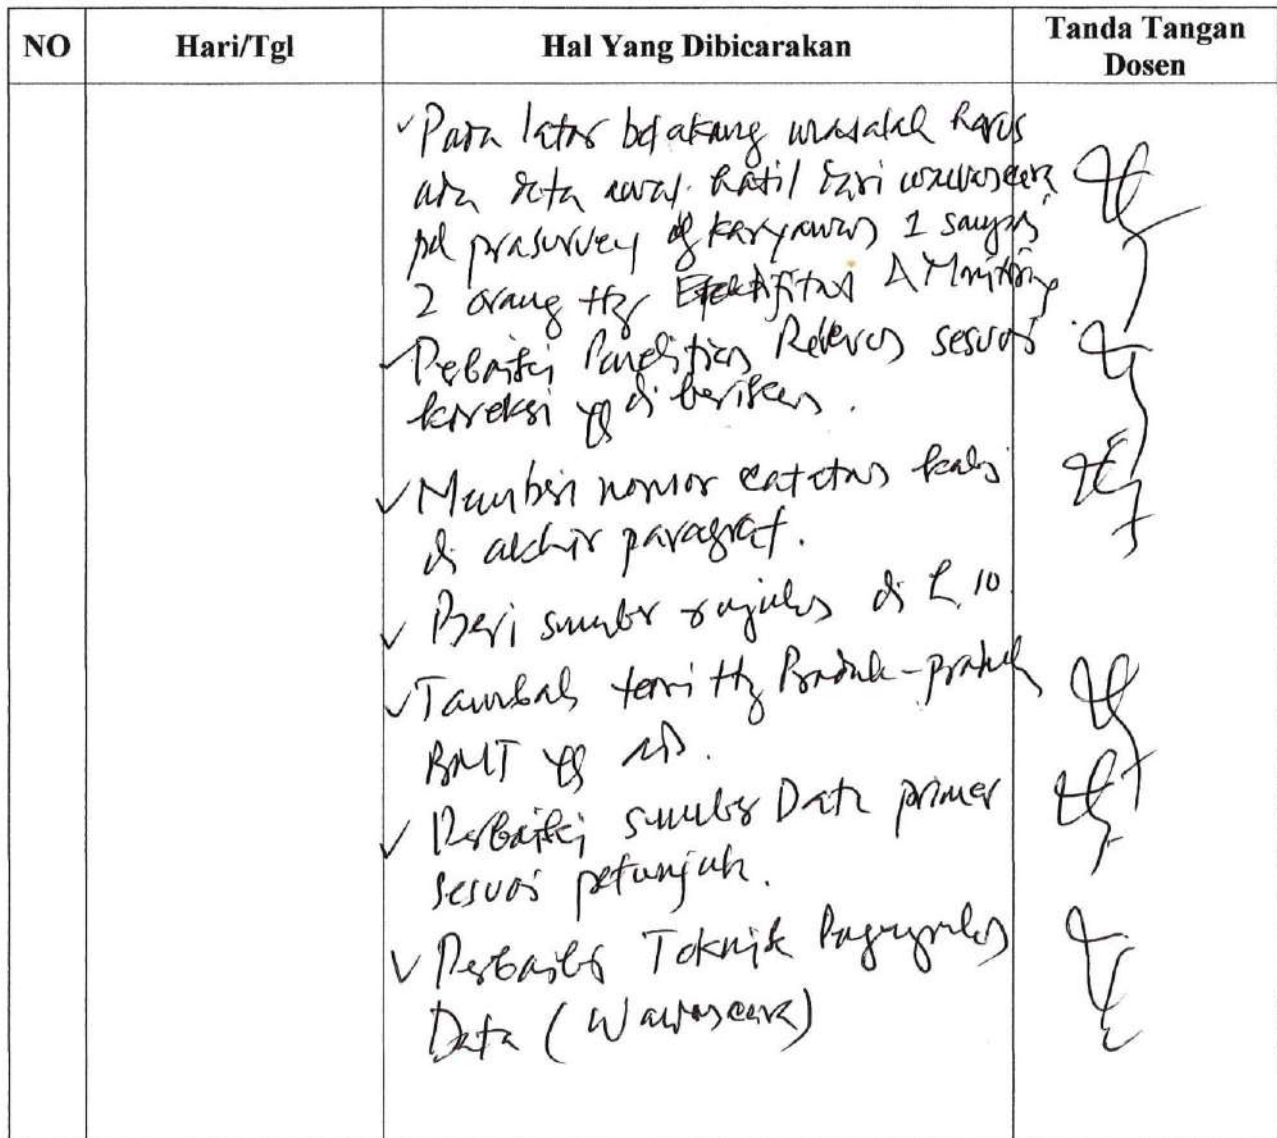 NO Hari/Tgl Hal Yang Dibicarakan Tanda Tangan Dosen
✓ Pada latar belakang masalah harus
ada data awal hasil dari wawancara
pd prasurvey dg karyawan 1 sampai
2 orang ttg Efektifitas Monitoring
✓ Perbaiki Penelitian Relevan sesuai
koreksi yg di berikan.
✓ Memberi nomor catatan kaki
di akhir paragraf.
✓ Beri sumber rujukan di h. 10
✓ Tambah teori ttg Produk-produk
BMT yg ada.
✓ Perbaiki sumber Data primer
sesuai petunjuk.
✓ Perbaiki Teknik Pengumpulan
Data (Wawancara)